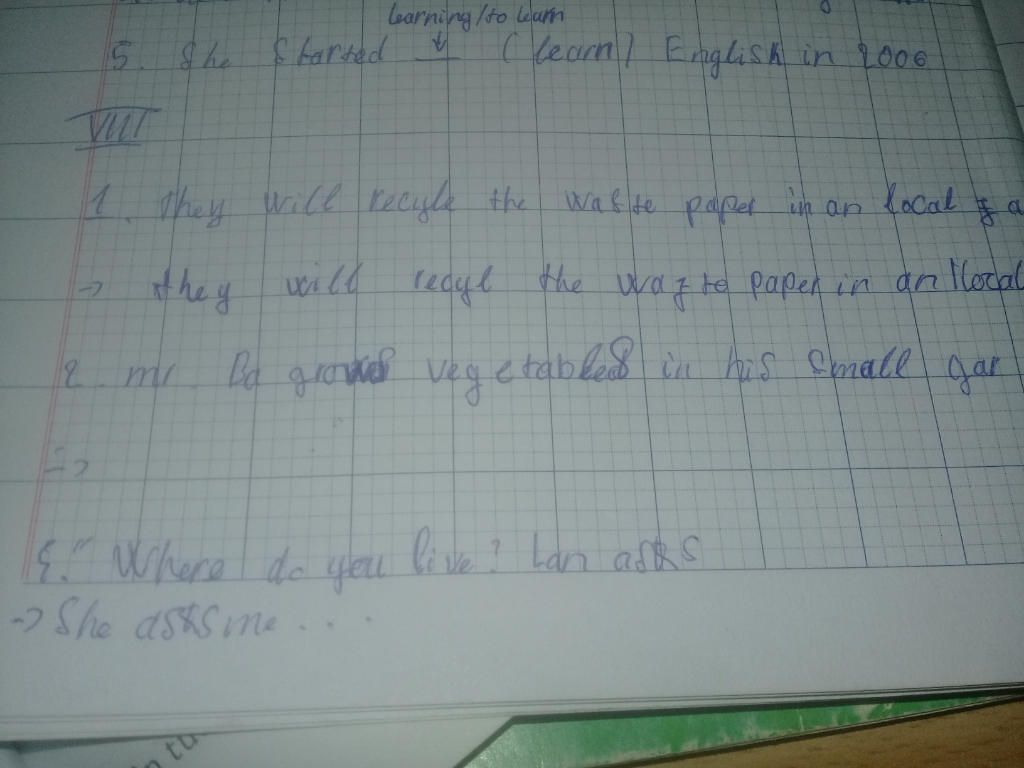 learning/to learn
5. She Started (learn) English in 2006
VIII
1. They will recyle the waste paper in an local
→ they will recyl the waste paper in an local
2. mr. Ba grows vegetables in his small gar
→
"Where do you live? Lan asks
→ She asks me ....